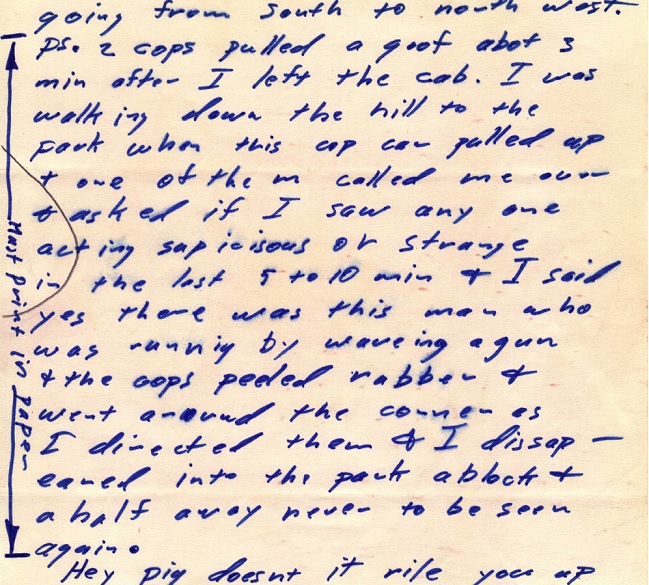 going from south to north west.
ps. 2 cops pulled a goof abot 3
min after I left the cab. I was
walking down the hill to the
park when this cop car pulled up
+ one of them called me over
& asked if I saw any one
acting supicisous or strange
in the last 5 to 10 min & I said
yes there was this man who
was runnig by waveing a gun
& the cops peeled rubber &
went around the corner as
I directed them & I dissap—
eared into the park a block &
a half away never to be seen
again.
Hey pig doesnt it rile you up
Must print in paper